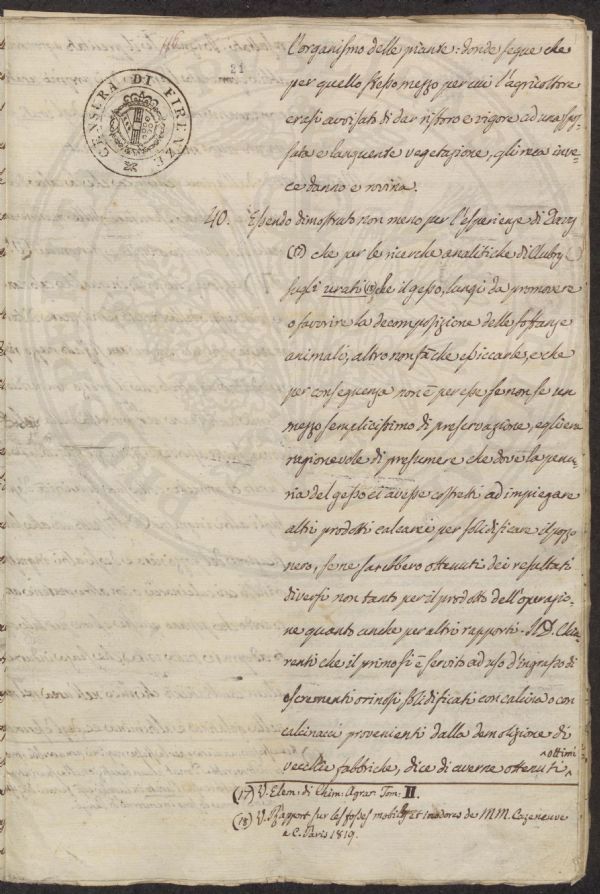 21
CENSERA DI FIRENZE
l'organismo delle piante: donde segue che
per quello stesso mezzo per cui l'agricoltore
erasi avvisato di dar ristoro e vigore ad una spos-
sata e languente vegetazione, gli reca inve-
ce danno e rovina.
40. Essendo dimostrato non meno per l'esperienze di Davy
(17) che per le ricerche analitiche di
sugli urati (18) che il gesso, lungi da promovere
o favorire la decomposizione delle sostanze
animali, altro non fà che essiccarle, e che
per conseguenza non è per esse se non se un
mezzo semplicissimo di preservazione, egli era
ragionevole di presumere che dove la penu-
ria del gesso ci avesse costretti ad impiegare
altri prodotti calcarei per solidificare il pozzo
nero, se ne sarebbero ottenuti dei resultati
diversi non tanto per il prodotto dell'operazio-
ne quanto anche per altri rapporti. Il D. Chia-
renti che il primo si è servito ad uso d'ingrasso di
escrementi orinosi solidificati con calcina o con
calcinacci provenienti dalla demolizione di
vecchie fabbriche, dice di averne ottenuti ^ottimi^
(17) V. Elem: di Chim: Agrar: Tom: II.
(18) V. Rapport sur les fosses mobiles et inodores de MM. Cazeneuve
e C. Paris 1819.